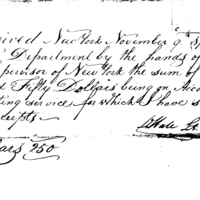 ived New York November 9.
Department by the hands of
pervisor of New York the sum of
d Fifty Dollars being on Acco
ting service for which I have s
ceipts.
Hale
ars 250